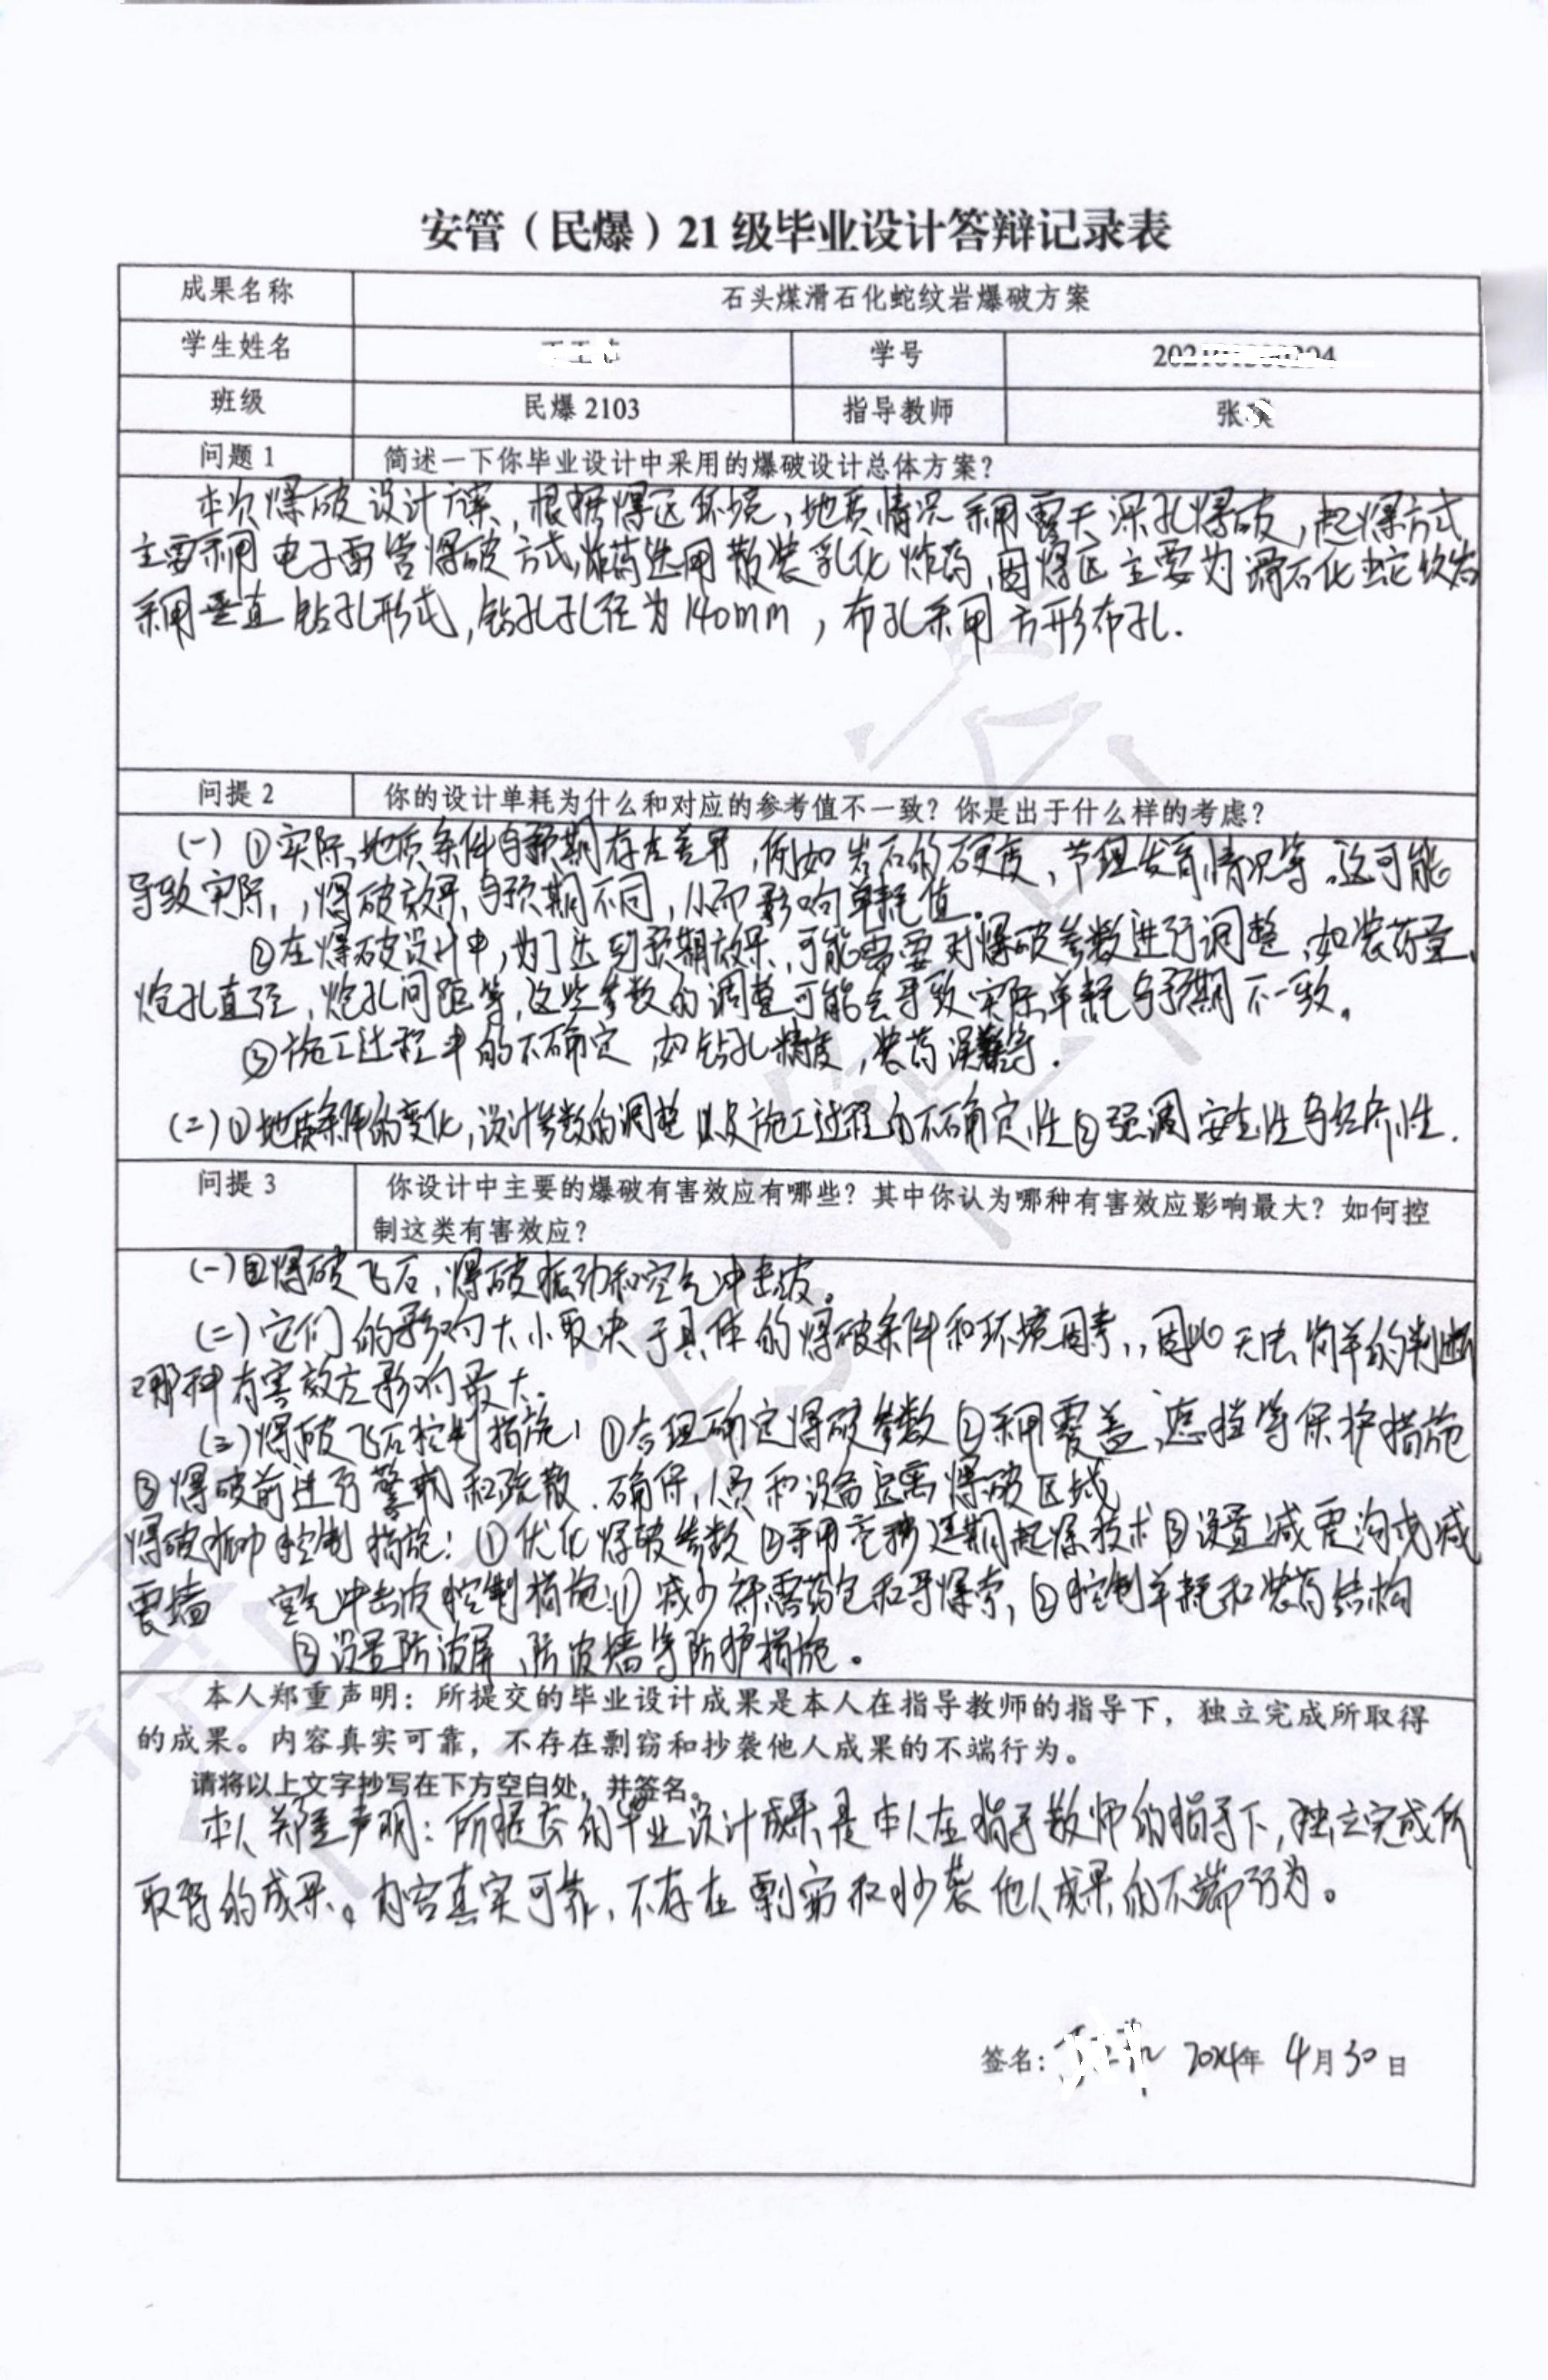 安管（民爆）21 级毕业设计答辩记录表
成果名称 石头煤滑石化蛇纹岩爆破方案
学生姓名 学号
班级 民爆 2103 指导教师 张
问题 1 简述一下你毕业设计中采用的爆破设计总体方案？
本次爆破设计方案，根据爆区环境、地质情况采用露天深孔爆破，起爆方式
主要采用电子雷管爆破方式，炸药选用散装乳化炸药，因爆区主要为滑石化蛇纹岩
采用垂直钻孔形式，钻孔孔径为140mm，布孔采用方形布孔.
问提 2 你的设计单耗为什么和对应的参考值不一致？你是出于什么样的考虑？
（一）①实际地质条件与预期存在差异，例如岩石的硬度、节理发育情况等。这可能
导致实际，，爆破效果与预期不同，从而影响单耗值。
②在爆破设计中，为了达到预期效果，可能需要对爆破参数进行调整，如装药量、
炮孔直径，炮孔间距等，这些参数的调整可能会导致实际单耗与预期不一致。
③施工过程中的不确定，如钻孔精度，装药误差等.
（二）①地质条件的变化，设计参数的调整以及施工过程的不确定性②强调安全性与经济性.
问提 3 你设计中主要的爆破有害效应有哪些？其中你认为哪种有害效应影响最大？如何控
制这类有害效应？
（一）爆破飞石，爆破振动和空气冲击波。
（二）它们的影响大小取决于具体的爆破条件和环境因素，，因此无法简单的判断
哪种有害效应影响最大.
（三）爆破飞石控制措施：①合理确定爆破参数②采用覆盖、遮挡等保护措施
③爆破前进行警戒和疏散.确保人员和设备远离爆破区域
爆破振动控制措施：①优化爆破参数②采用毫秒延期起爆技术③设置减震沟或减
震墙 空气冲击波控制措施：①减少裸露药包和导爆索，②控制单耗和装药结构
③设置防波屏、防波墙等防护措施。
本人郑重声明：所提交的毕业设计成果是本人在指导教师的指导下，独立完成所取得
的成果。内容真实可靠，不存在剽窃和抄袭他人成果的不端行为。
请将以上文字抄写在下方空白处，并签名。
本人郑重声明：所提交的毕业设计成果是本人在指导教师的指导下，独立完成所
取得的成果。内容真实可靠，不存在剽窃和抄袭他人成果的不端行为。
签名： 2024年 4月30日